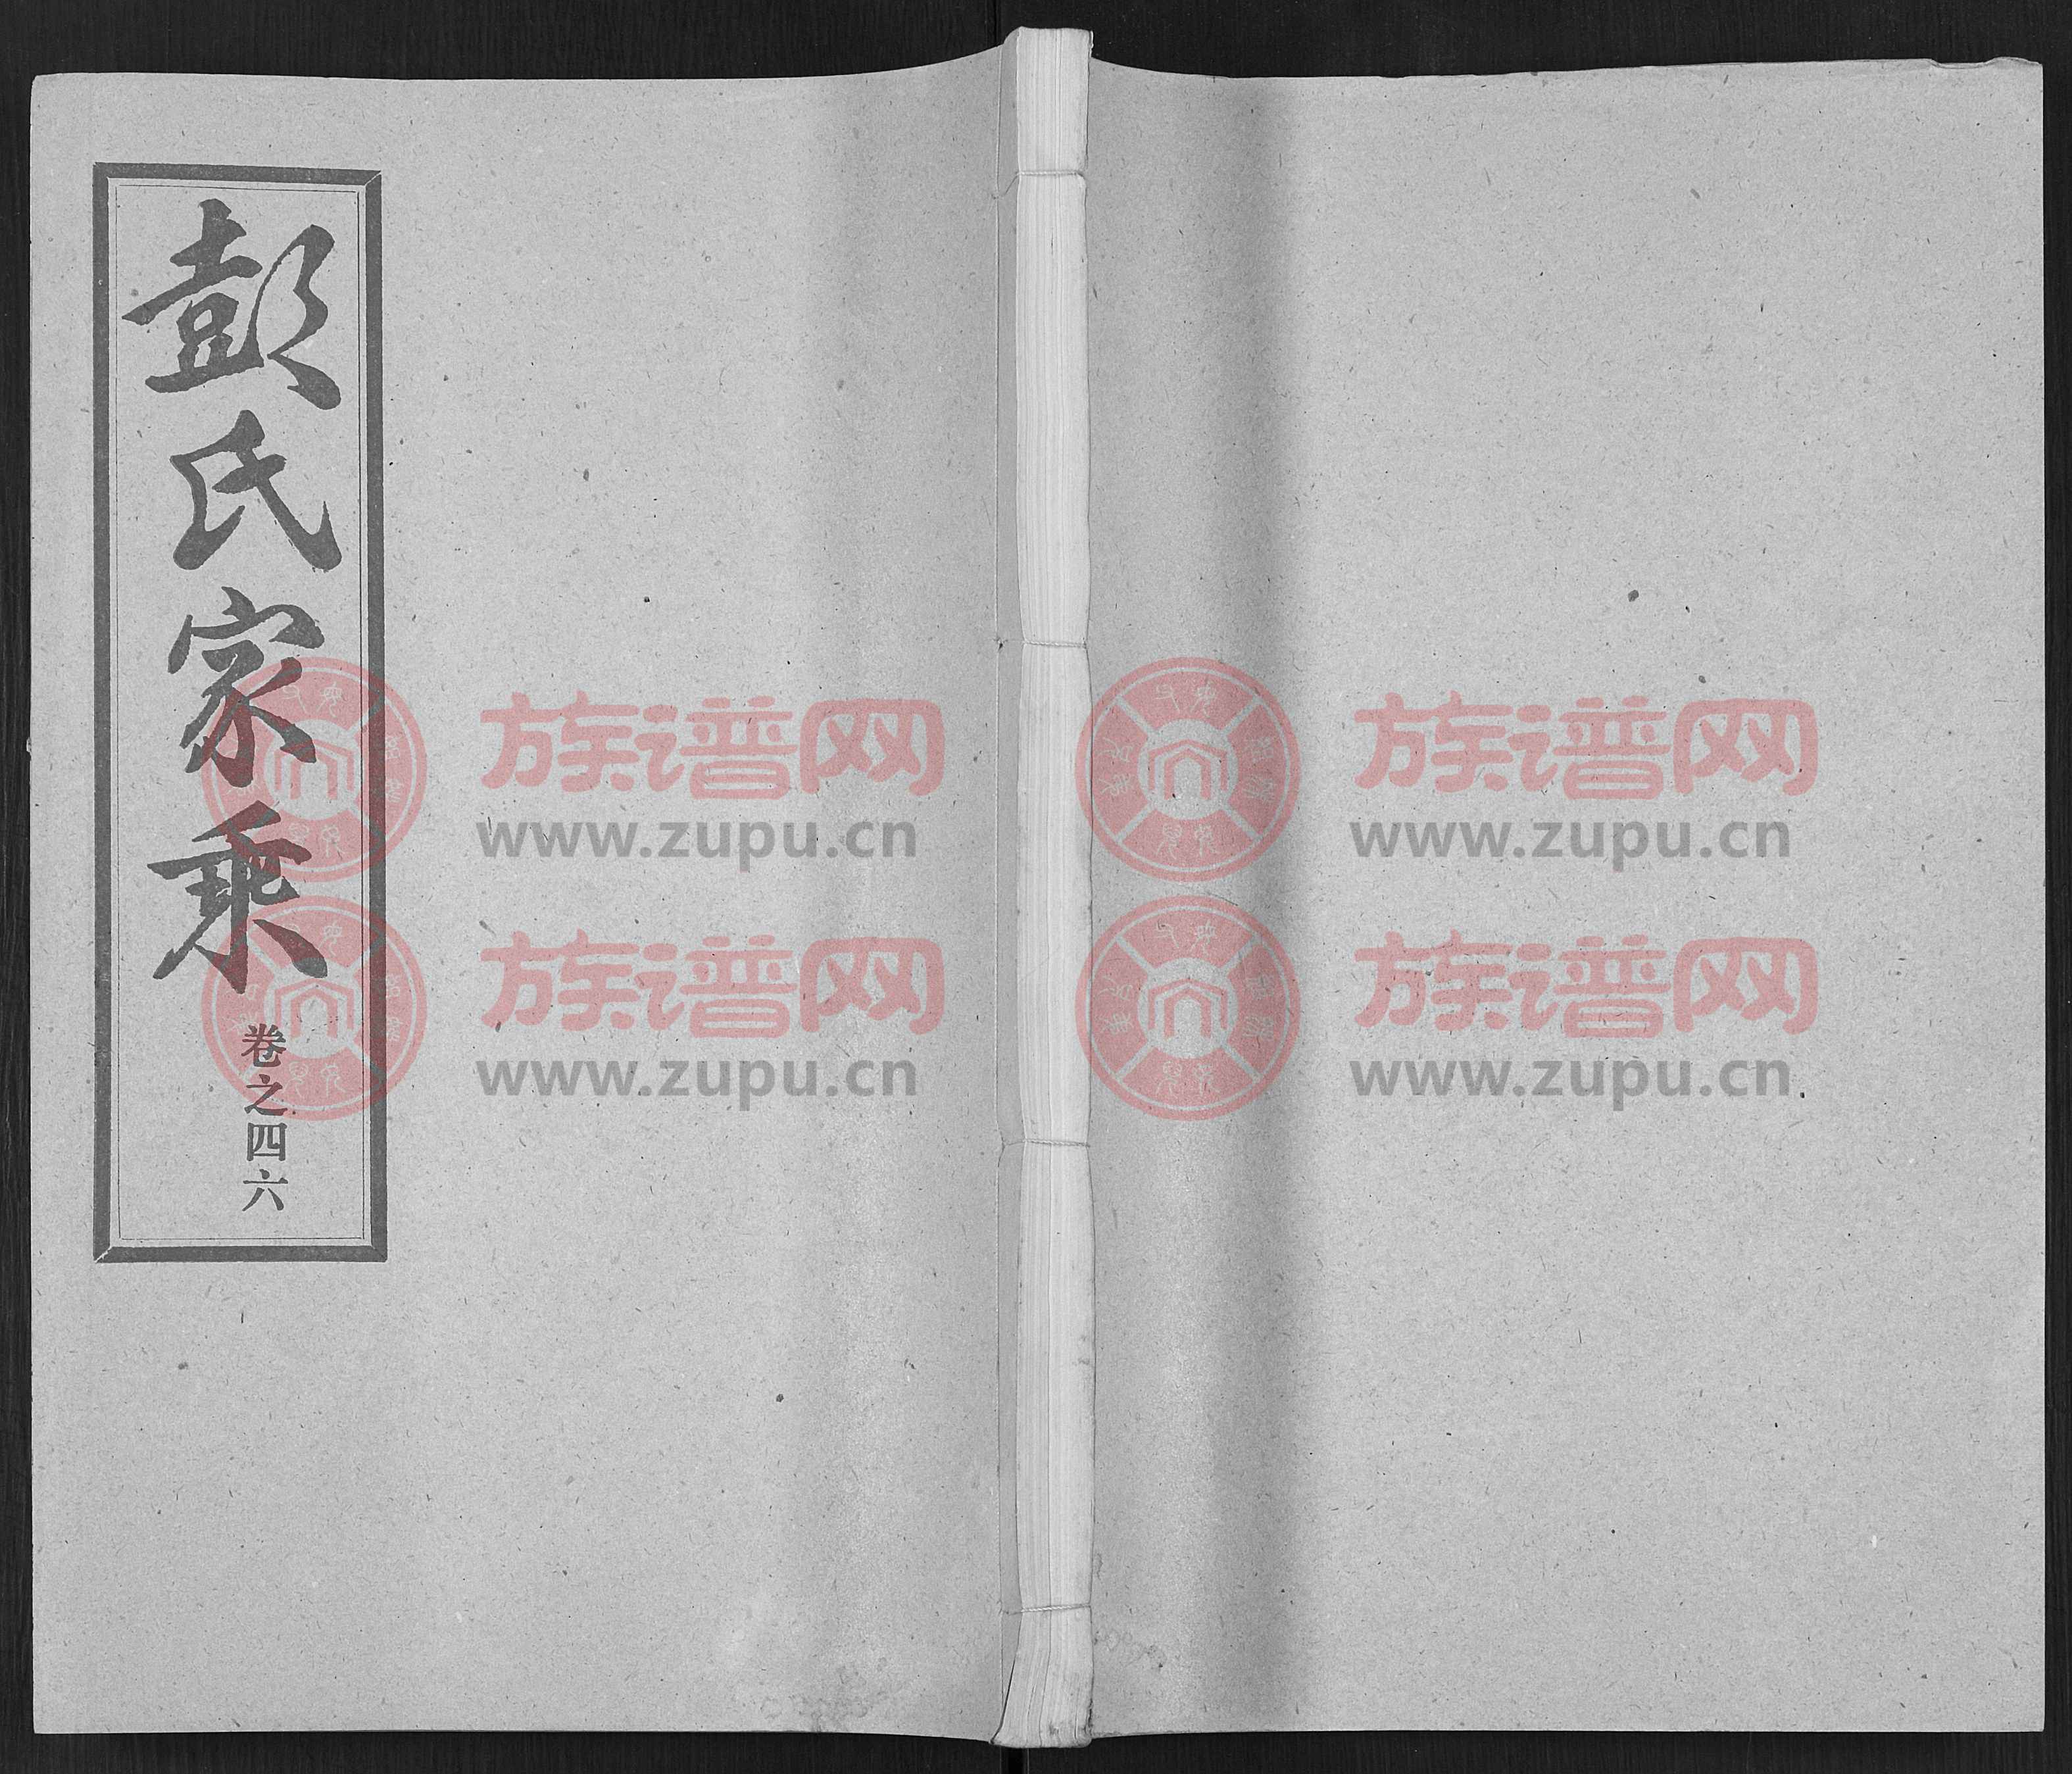 彭氏家乘
卷之四六
族谱网
www.zupu.cn
族谱网
www.zupu.cn
族谱网
www.zupu.cn
族谱网
www.zupu.cn